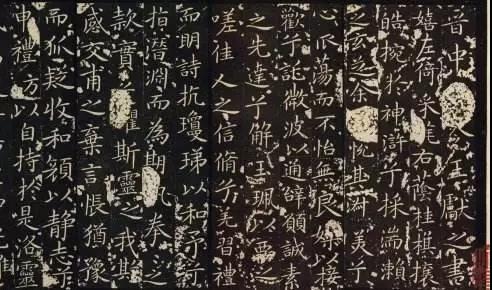 晉中書令王獻之書
嬉左倚采旄右蔭桂旗攘
皓捥於神滸兮採湍瀨
之玄芝余悅其淑美兮
心振蕩而不怡無良媒以接
歡兮託微波以通辭願誠素
之先達兮解玉珮以要之
嗟佳人之信脩兮羌習禮
而明詩抗瓊珶以和予兮
指潛淵而為期執眷之
款實懼斯靈之我欺
感交甫之棄言悵猶豫
而狐疑收和顏以靜志兮
申禮防以自持於是洛靈